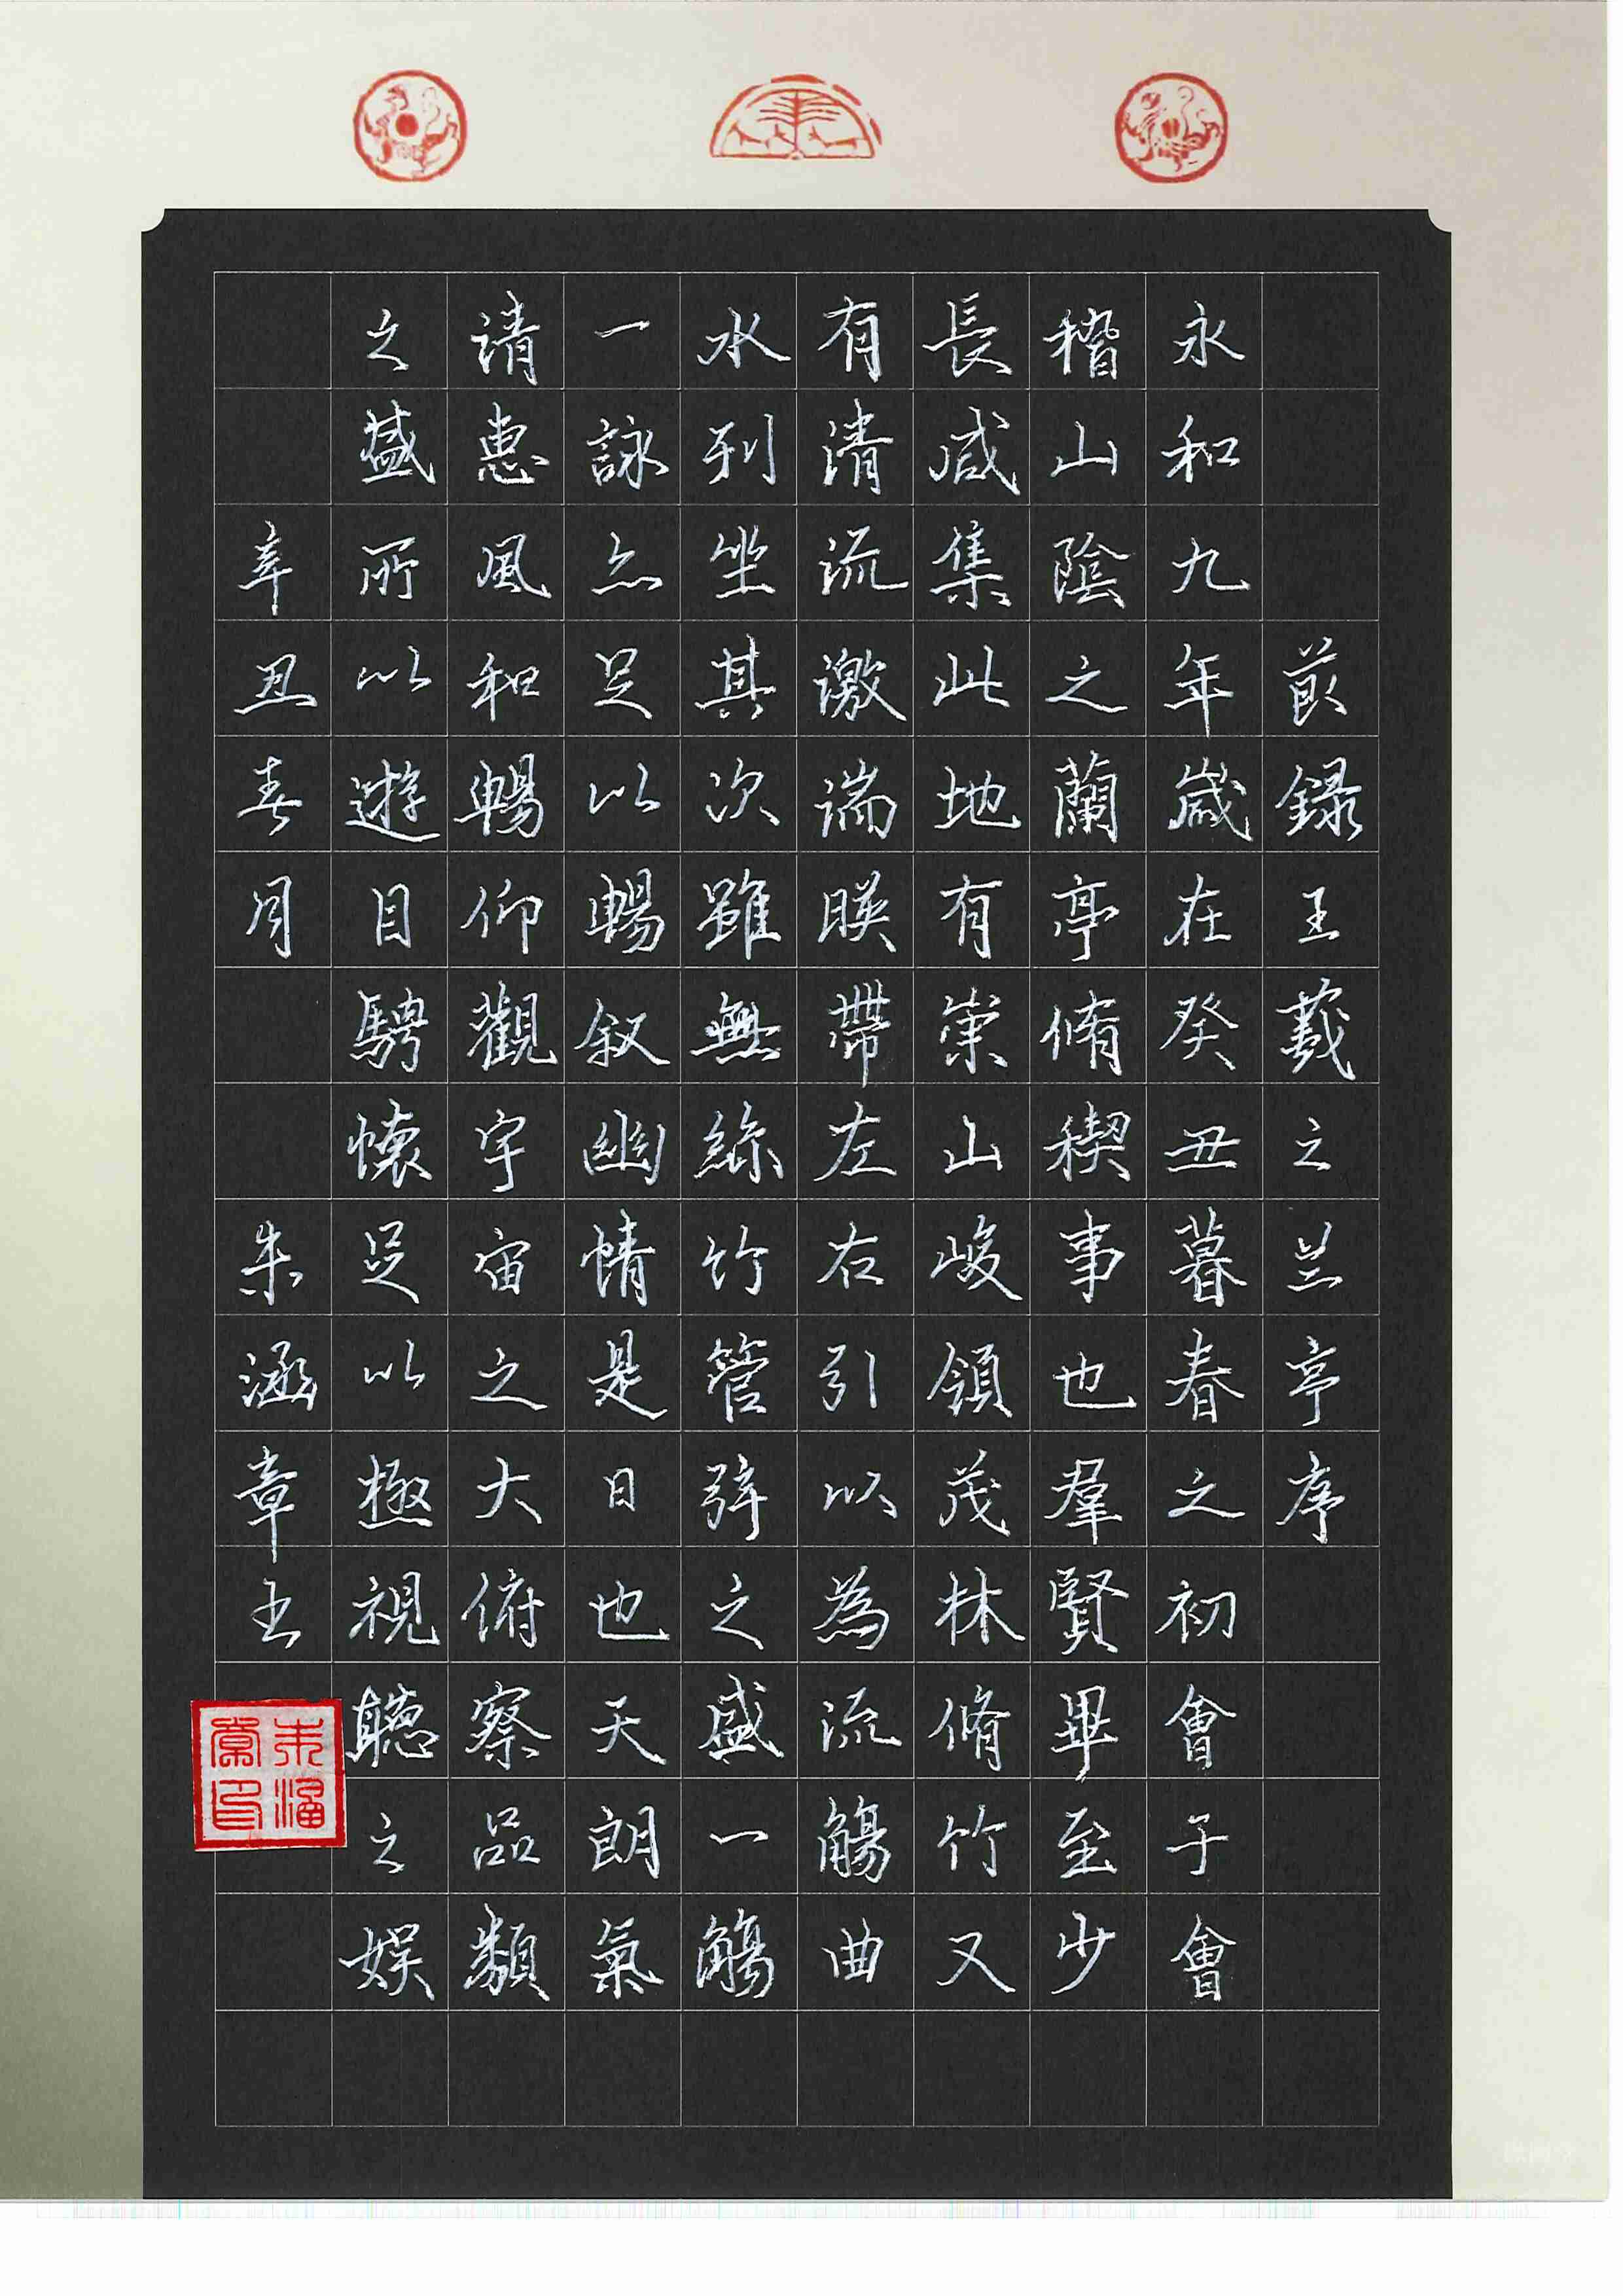 莭録王羲之兰亭序
永和九年歲在癸丑暮春之初會于會
稽山陰之蘭亭脩禊事也羣賢畢至少
長咸集此地有崇山峻領茂林脩竹又
有清流激湍暎帶左右引以為流觴曲
水列坐其次雖無絲竹管弦之盛一觴
一詠亦足以暢叙幽情是日也天朗氣
清惠風和暢仰觀宇宙之大俯察品類
之盛所以遊目騁懷足以極視聽之娛
辛丑春月 朱涵章